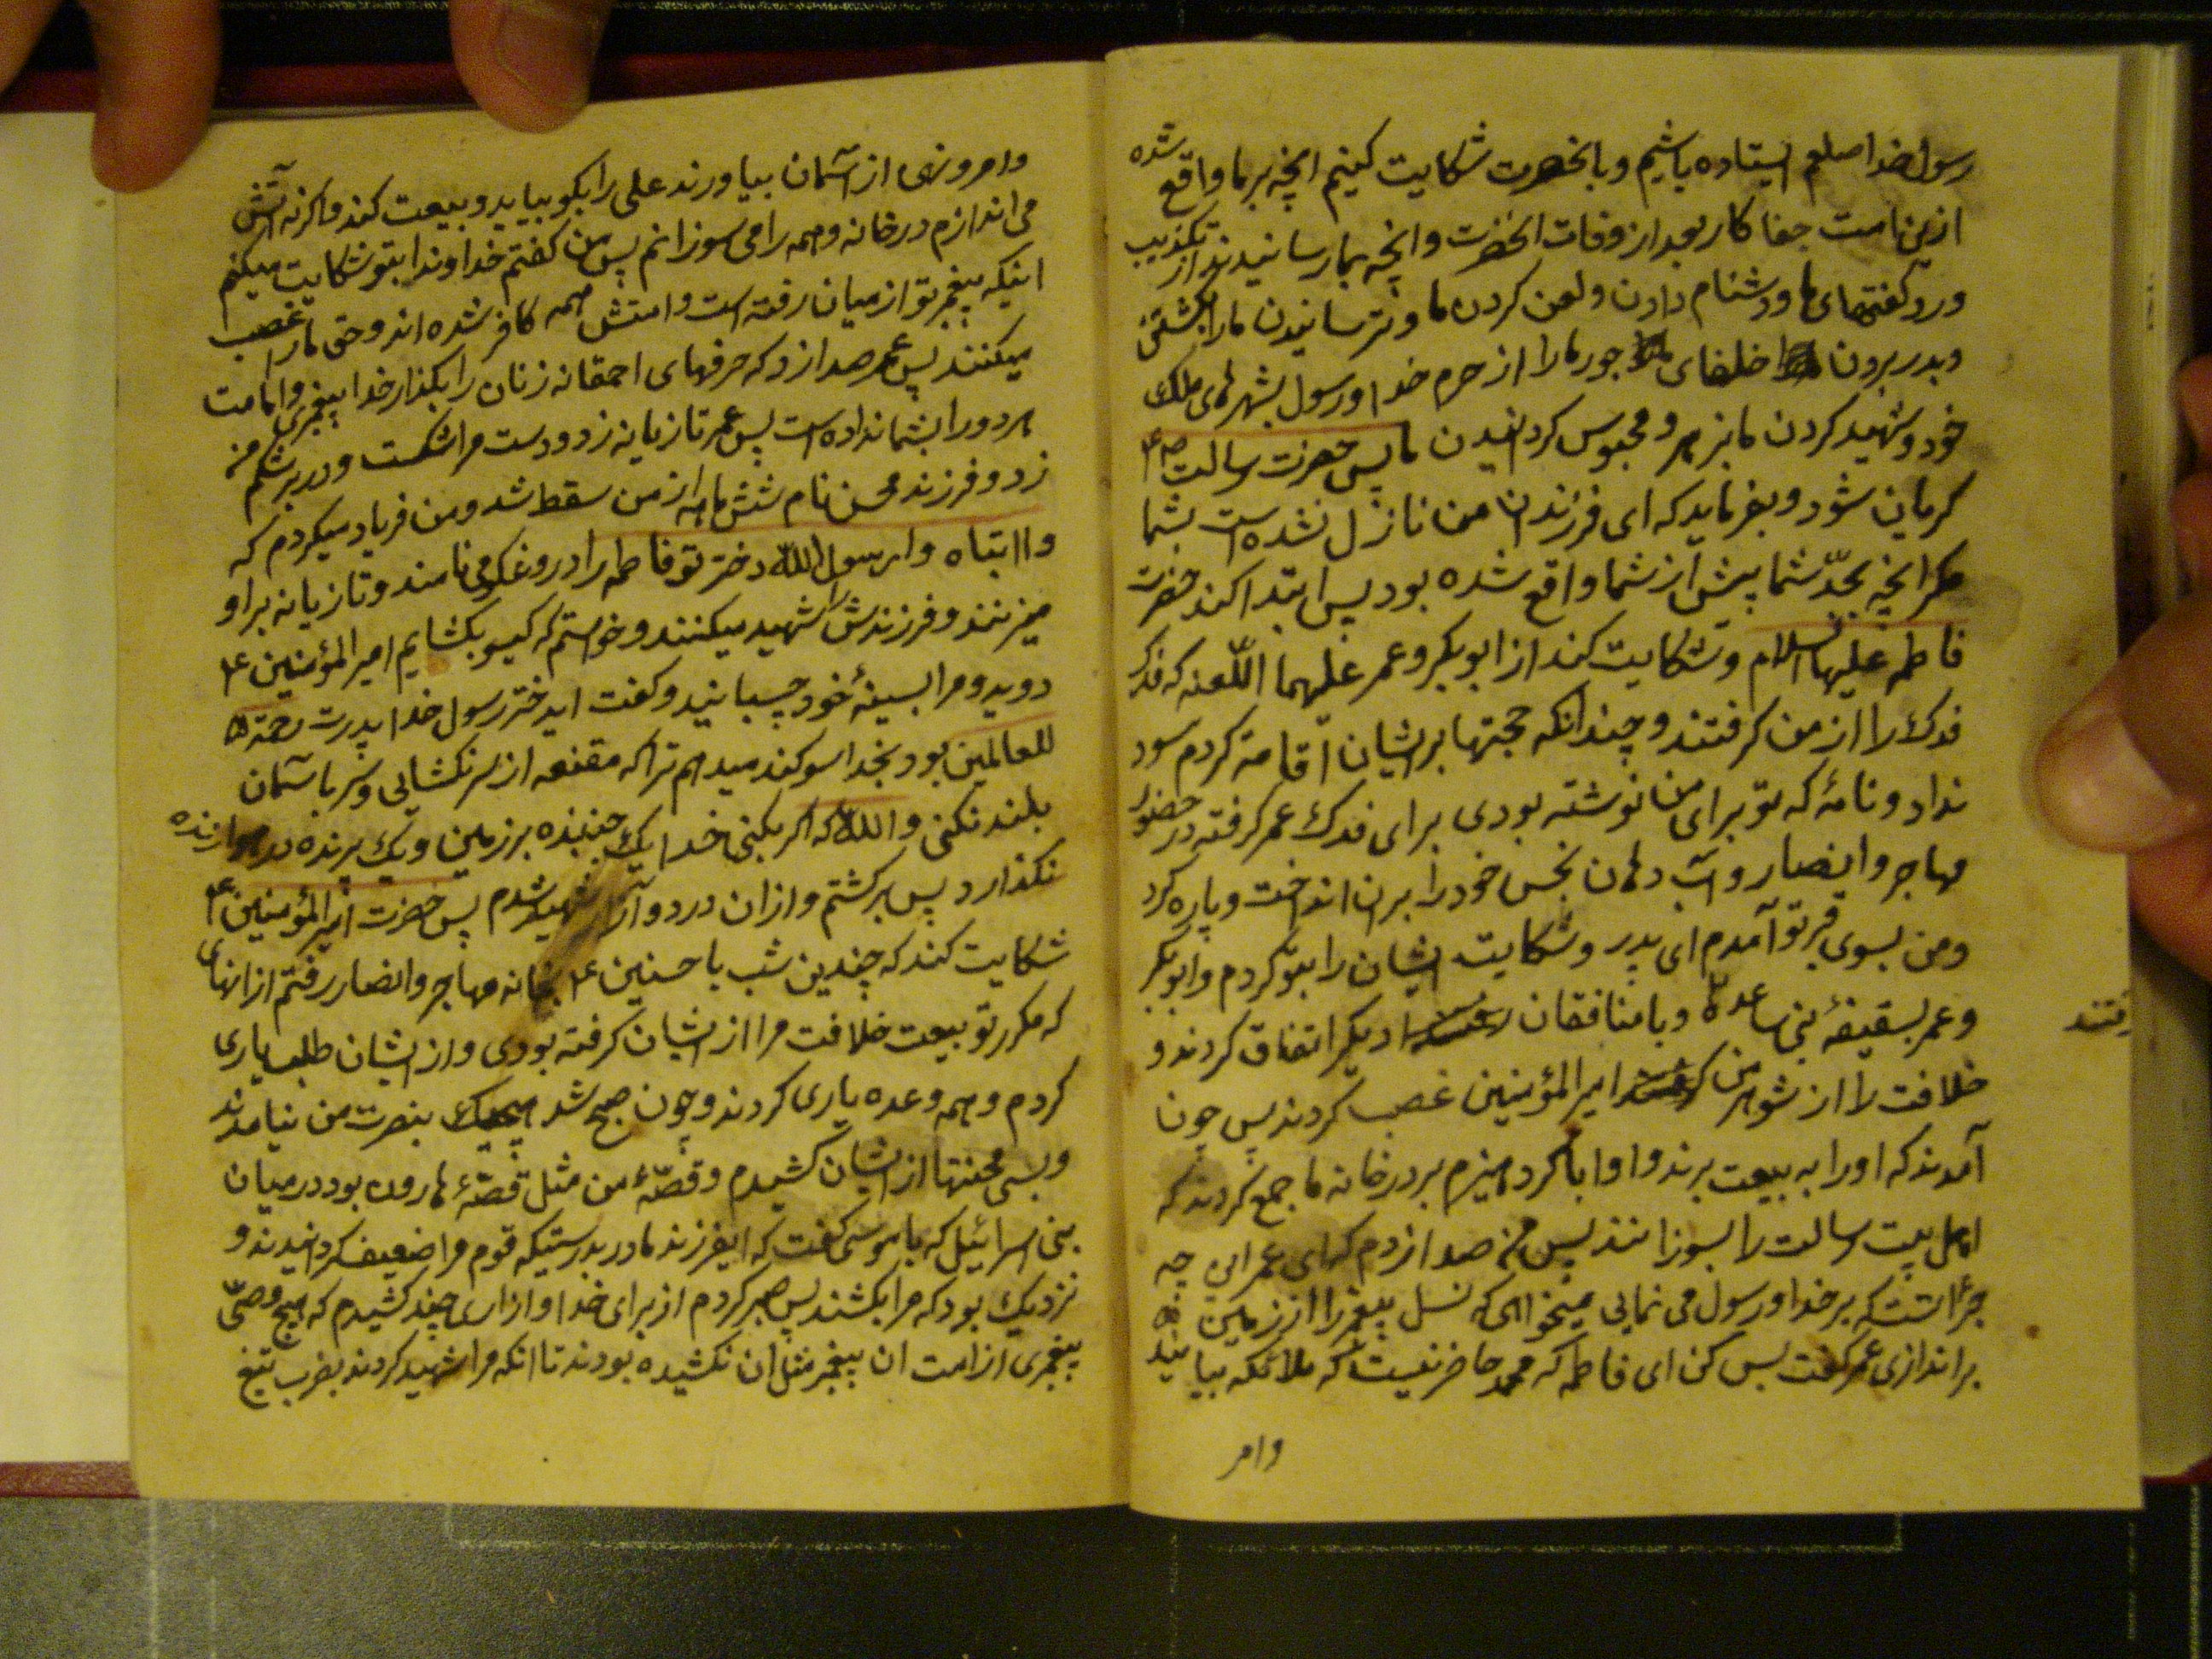 رسول خدا صلعم ایستاده باشیم و بانحضرت شکایت کنیم انچه بر ما واقع شده
ازین امت جفا کار بعد از وفات انحضرت و انچه بما رسانیدند از تکذیب
و رد گفتهای ما و دشنام دادن و لعن کردن ما و ترسانیدن ما را بکشتن
و بدر بردن خلفای جور ما را از حرم خدا و رسول بشهرهای ملک
خود و شهید کردن ما بزهر و محبوس کردانیدن ما پس حضرت رسالت ص ع
کریان شود و بفرماید که ای فرزندان من نازل نشده است بشما
مکر انچه بجدّ شما پیش از شما واقع شده بود پس ابتدا کند حضرت
فاطمه علیها السلام و شکایت کند از ابوبکر و عمر علیهما اللّعنه که فدک
فدک را از من کرفتند و چندانکه حجتها بر ایشان اقامة کردم سود
نداد و نامهٔ که تو برای من نوشته بودی برای فدک عمر کرفته در حضور
مهاجر و انصار و آب دهان نجس خود را بر ان انداخت و پاره کرد
و من بسوی قبر تو آمدم ای پدر و شکایت ایشان را بتو کردم و ابوبکر
و عمر بسقیفهٔ بنی ساعده و با منافقان دیکر اتفاق کردند و
رفتند
خلافت را از شوهر من امیر المؤمنین غصب کردند پس چون
آمدند که او را به بیعت برند و او ابا کرد هیزم بر در خانه ما جمع کردند که
اهل بیت رسالت را بسوزانند پس من صدا زدم که ای عمر این چه
جرٲتست که بر خدا و رسول می نمایی میخواهی که نسل پیغمبر را از زمین
براندازی عمر گفت بس کن ای فاطمه که محمد حاضر نیست که ملائکه بیایند
وامر
وامر و نهی از آسمان بیاورند علی را بکو بیاید و بیعت کند و اکرنه آتش
می اندازم در خانه و همه را می سوزانم پس من کفتم خداوندا بتو شکایت میکنم
اینکه پیغمبر تو از میان رفته است و امتش همه کافر شده اند و حق ما را غصب
میکنند پس عمر صدا زد که حرفهای احمقانه زنان را بکذار خدا پیغمبری و امامت
هر دو را بشما نداده است پس عمر تازیانه زد و دست مرا شکست و در بر شکم من
زد و فرزند محسن نام شش ماهه از من سقط شد و من فریاد میکردم که
وا ابتاه وا رسول اللّه دختر تو فاطمه را دروغکو می نامند و تازیانه بر او
میزنند و فرزندش را شهید میکنند و خواستم که کیسو بکشایم امیر المؤمنین ع
دوید و مرا بسینهٔ خود چسبانید و کفت ایدختر رسول خدا پدرت رحمة
للعالمین بود بخدا سوکند میدهم ترا که مقنعه از سر نکشایی و سر باسمان
بلند نکنی واللّه که اکر بکنی خدا یک جنبنده بر زمین و یک پرنده در هوا زنده
نکذارد پس برکشتم و ازان درد و آزار شهید شدم پس حضرت امیر المؤمنین ع
شکایت کند که چندین شب با حسنین ع بخانه مهاجر و انصار رفتم از انهای
که مکرر تو بیعت خلافت مرا از ایشان کرفته بودی و از ایشان طلب یاری
کردم و همه وعده یاری کردند و چون صبح شد هیچیک بنصرت من نیامدند
و بسی محنتها از ایشان کشیدم و قصّهٔ من مثل قصّهٔ هارون بود در میان
بنی اسرائیل که با موسی کفت که ایفرزند مادر بدرستیکه قوم مرا ضعیف کردانیدند و
نزدیک بود که مرا بکشند پس صبر کردم از برای خدا و ازاری چند کشیدم که هیچ وصیّ
پیغمبری از امت ان پیغمبر مثل ان نکشیده بودند تا انکه مرا شهید کردند بضرب تیغ